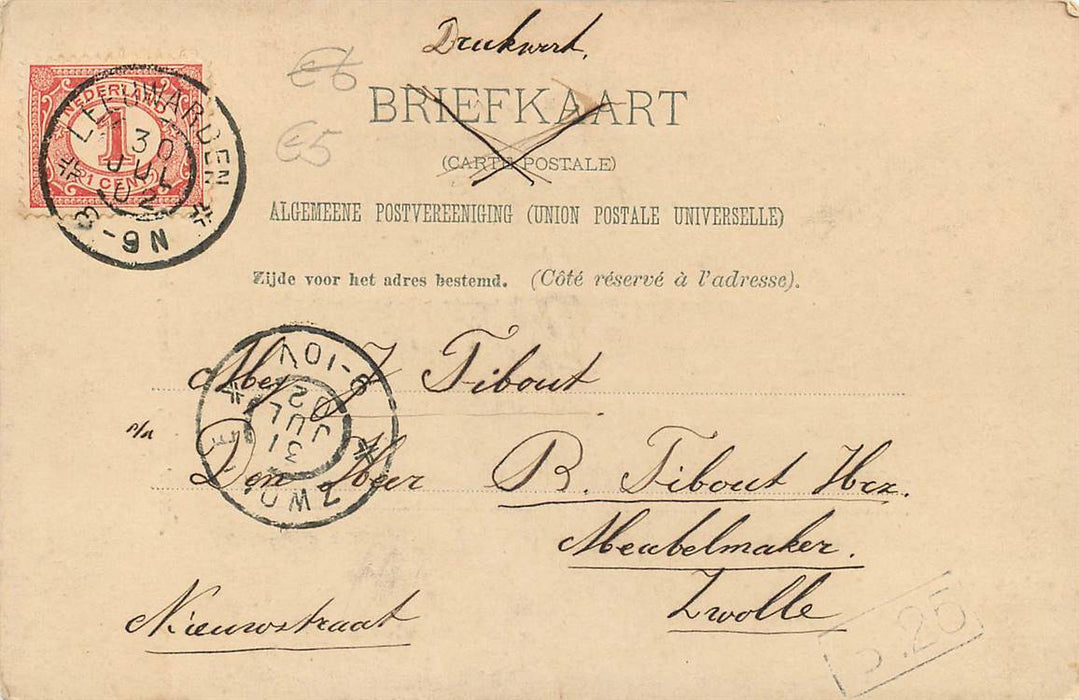 Drukwerk,
€6
€5
BRIEFKAART
(CARTE POSTALE)
ALGEMEENE POSTVEREENIGING (UNION POSTALE UNIVERSELLE)
Zijde voor het adres bestemd. (Côté réservé à l'adresse).
NEDERLAND
1
1 CENT
LEEUWARDEN
30
JUL
02
6-9N
Mej J Tibout
p/a
Den Heer B. Tibout Hzn.
Meubelmaker.
Zwolle
Nieuwstraat
ZWOLLE
31
JUL
02
9-10V
.25